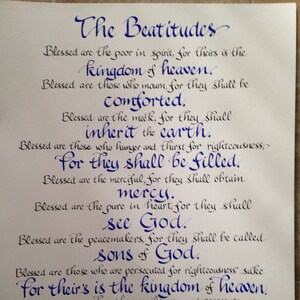 The Beatitudes
Blessed are the poor in spirit, for theirs is the
kingdom of heaven.
Blessed are those who mourn, for they shall be
comforted.
Blessed are the meek, for they shall
inherit the earth.
Blessed are those who hunger and thirst for righteousness,
for they shall be filled.
Blessed are the merciful, for they shall obtain
mercy.
Blessed are the pure in heart, for they shall
see God.
Blessed are the peacemakers, for they shall be called
sons of God.
Blessed are those who are persecuted for righteousness' sake
for their's is the kingdom of heaven.